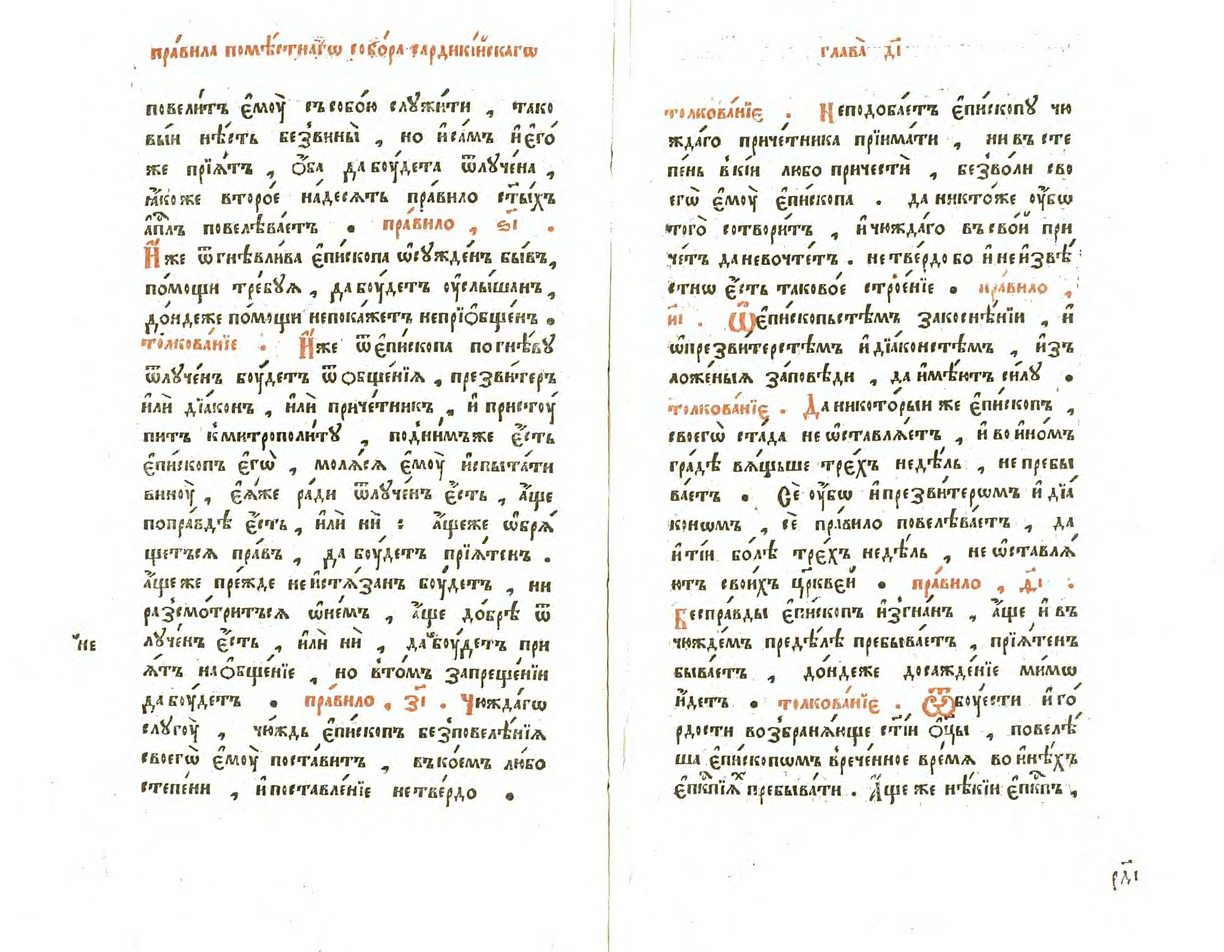 пра́вила помѣ́стнагѡ собо́ра сардикі́йскагѡ
повели́тъ є҆моу̀ съсобо́ю слꙋжи́ти , тако
вы́и нѣ́сть безвины̀ , но и҆са́мъ и҆є҆го́
же прїѧ́тъ , о҆́ба дабоу́дета ѿлꙋче́на ,
ꙗ҆́коже второ́е на́десѧть пра́вило ст҃ы́хъ
а҆п҃лъ повелѣва́етъ . пра́вило , ѕ҃і .
И҆́же ѿгнѣвли́ва є҆пи́скопа ѡ҆сꙋжде́нъ бы́въ,
по́мощи тре́бꙋѧ , дабоу́детъ оу҆слы́шанъ ,
до́ндеже по́мощи непока́жетъ непрїѻбще́нъ .
толкова́нїе . И҆́же ѿє҆пи́скопа погнѣ́вꙋ
ѿлꙋче́нъ боу́детъ ѿ ѻбще́нїѧ , презви́теръ
и҆лѝ дїа́конъ , и҆лѝ приче́тникъ , и҆ пристоу́
питъ кмитрополи́тꙋ , под̾ни́мъже є҆́сть
є҆пи́скопъ є҆гѡ̀ , молѧ́сѧ є҆моу̀ и҆спыта́ти
виноу̀ , є҆ѧ́же ра́ди ѿлꙋче́нъ є҆́сть , а҆́ще
попра́вдѣ є҆́сть , и҆лѝ нѝ : а҆́щеже ѡ҆брѧ́
щетъсѧ пра́въ , дабоу́детъ прїѧ́тенъ .
а҆́щеже пре́жде неи҆стѧ́занъ боу́детъ , ни
раз̾смо́тритьсѧ ѡ҆не́мъ , а҆́ще до́брѣ ѿ
лꙋче́нъ є҆́сть , и҆лѝ нѝ , дабоу́детъ при
ѧ́тъ наѻбще́нїе , но вто́мъ запреще́нїи
дабоу́детъ . пра́вило , з҃і . Чюжда́гѡ
слꙋгоу̀ , чю́ждь є҆пи́скопъ безповелѣ́нїѧ
своегѡ̀ є҆моу̀ поста́витъ , въко́емъ лю́бо
степе́ни , и҆поставле́нїе нетве́рдо .
не
глава̀ д҃і
толкова́нїе . Неподоба́етъ є҆пи́скопꙋ чю
жда́го приче́тника прїима́ти , ни въ сте
пе́нь в̾кі́и лю́бо приче́сти , безво́ли сво
егѡ̀ є҆моу̀ є҆пи́скопа . да никто́же оу҆́бѡ
того̀ сотвори́тъ , и҆чюжда́го въсво́и при
че́тъ даневочте́тъ . нетве́рдо бо и҆неи҆звѣ́
стнѡ є҆́сть таково́е строе́нїе . пра́вило ,
и҃і . Ѡ҆є҆пи́скопьстѣмъ закоснѣ́нїи , и҆
ѡ҆презви́терстѣмъ и҆дїа́констѣмъ , и҆зъ
ложе́ныѧ за́повѣди , да и҆мѣ́ютъ си́лꙋ .
толкова́нїе . Да никоторы́и же є҆пи́скопъ ,
своегѡ̀ ста́да не ѡ҆ставлѧ́етъ , и҆ во и҆но́мъ
гра́дѣ вѧ́щьше тре́хъ недѣ́ль , не пребы
ва́етъ . Се́ оу҆́бѡ и҆презви́терѡмъ и҆ дїа́
конѡмъ , се́ пра́вило повелѣва́етъ , да
и҆ ті́и бо́лѣ тре́хъ недѣ́ль , не ѡ҆ставлѧ́
ютъ свои́хъ цр҃кве́й . пра́вило , д҃і .
Бесправды̀ є҆пи́скопъ и҆згна́нъ , а҆́ще и҆ въ
чюжде́мъ предѣ́лѣ пребыва́етъ , прїѧ́тенъ
быва́етъ , до́ндеже досажде́нїе ми́мѡ
и҆́детъ . толкова́нїе . Ѿбоу́ести и҆ го́
рдости возбранѧ́юще ст҃і́и ѻ҆ц҃ы̀ , повелѣ́
ша є҆пи́скопѡмъ в̾рече́нное вре́мѧ во и҆нѣ́хъ
є҆пк҃пїѧхъ пребыва́ти . А҆́ще же нѣ́кїи є҆пк҃пъ ,
рд҃і